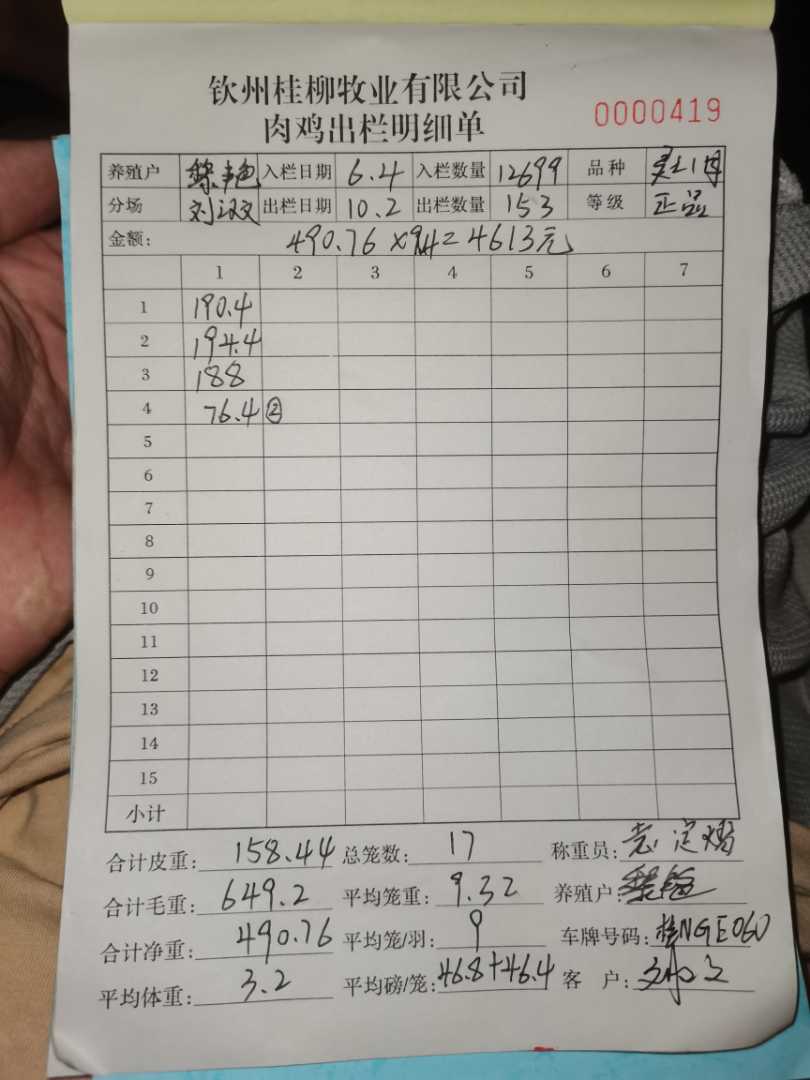 钦州桂柳牧业有限公司
肉鸡出栏明细单
0000419
养殖户 入栏日期 6.4 入栏数量 12699 品种
分场 刘汉文 出栏日期 10.2 出栏数量 153 等级 正品
金额: 490.76×9.4=4613元
1 2 3 4 5 6 7
1 190.4
2 194.4
3 188
4 76.4 ②
5
6
7
8
9
10
11
12
13
14
15
小计
合计皮重: 158.44 总笼数: 17 称重员:
合计毛重: 649.2 平均笼重: 9.32 养殖户:
合计净重: 490.76 平均笼/羽: 9 车牌号码: 桂NGE060
平均体重: 3.2 平均磅/笼: 46.8+46.4 客 户: